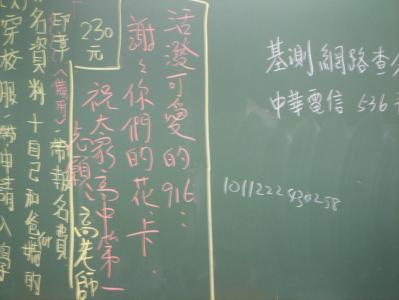 基測網路查
中華電信 536
1011222430258
活潑可愛的916:
謝々你們的花、卡
祝大家高中第一
志願
高老師
230
元
印章(備用)、帶報名費
名資料+自己和爸媽的
穿校服、帶申請入學